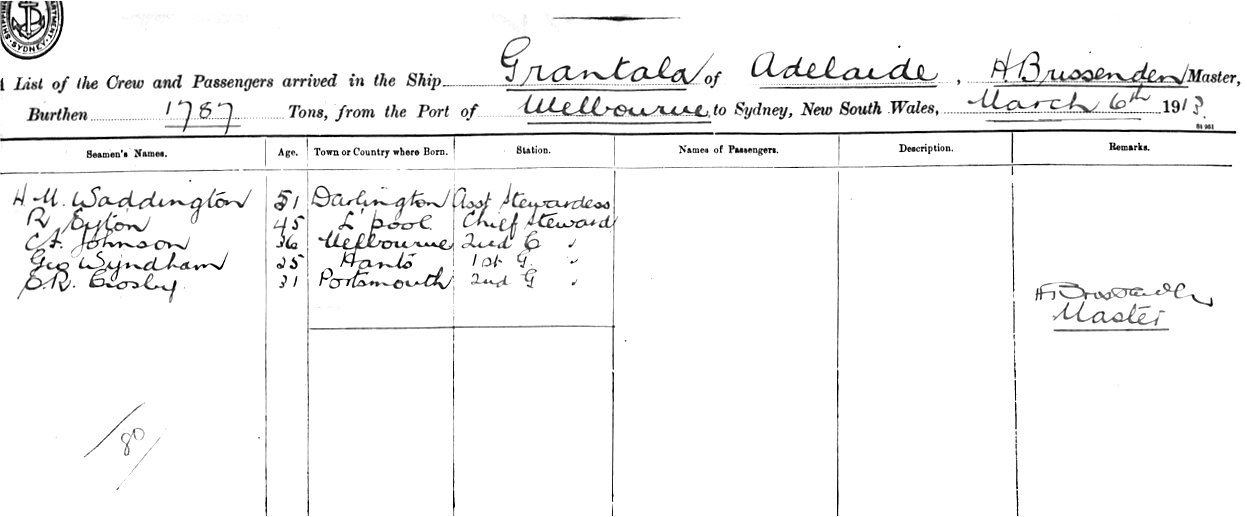 DEPARTMENT SYDNEY SHIPPING
A List of the Crew and Passengers arrived in the Ship Grantala of Adelaide, H. Brissenden Master,
Burthen 1787 Tons, from the Port of Melbourne to Sydney, New South Wales, March 6th 1913
Seamen's Names. Age. Town or Country where Born. Station. Names of Passengers. Description. Remarks.
H M. Waddington 51 Darlington Asst Stewardess
R Eyton 45 L'pool Chief Steward
C.F. Johnson 36 Melbourne 2nd C "
Geo Wyndham 25 Hants 1st G. "
S.R. Crosby 31 Portsmouth 2nd G "
Master
/80/